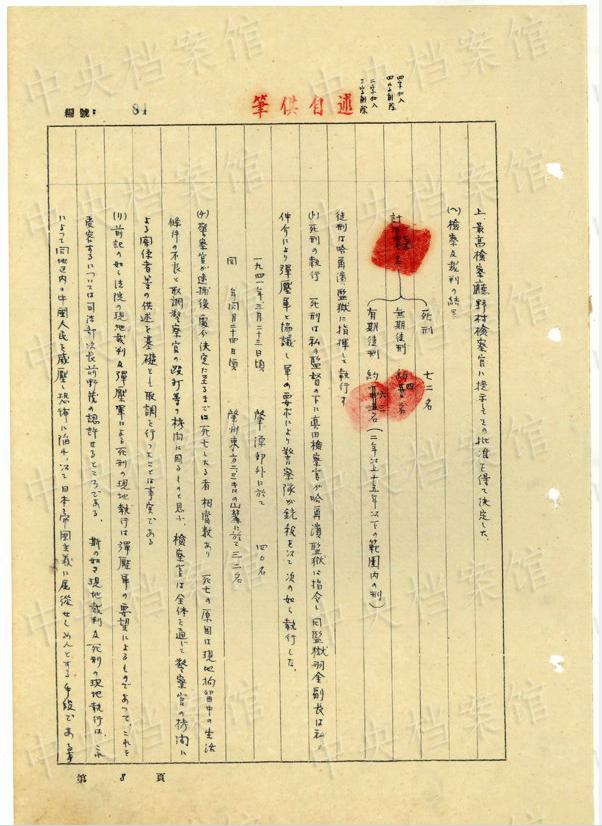 編號: 81
筆供自述
四字加入
四字削除
二字加入
三字削除
上、最高檢察廳野村檢察官に提示しその批准を得て決定した。
(ヘ) 檢察及裁判の結果
死刑 七二名
無期徒刑 約 四名
有期徒刑 約 名 (二年以上十五年以下の範圍内の刑)
計
徒刑は哈爾濱監獄に指揮して執行す
(ト) 死刑の執行 死刑は私の監督の下に真田檢察官が哈爾濱監獄に指令し 同監獄羽金副長は私
仲介により彈壓軍と協議し軍の要求により警察隊が銃殺を以て次の如し執行した。
一九四一年三月二十三日頃 肇源郊外に於て 四〇名
同 年同月二十四日頃 肇州東方二三キロの山麓に於て 三二名
(チ) 警察官が逮捕後處分決定に至るまでに死亡したる者 相當數あり 死亡の原因は現地拘留中の生活
條件の不良と取調警察官の毆打等の拷問に因るものと思ふ、檢察官は全体を通じて警察官の拷問に
よる関係者等の供述を基礎とし取調を行ったことは事実である
(リ) 前記の如し法院の現地裁判及彈壓軍による死刑の現地執行は彈壓軍の要望によるものであって、これを
については司法部次長前野茂の認許せるところである。 斯の如き現地裁判及死刑の現地執行は、これ
によって同地區内の中國人民を威壓し恐怖に陥れ、以て日本帝國主義に屈從せしめんとする手段である
第 8 頁